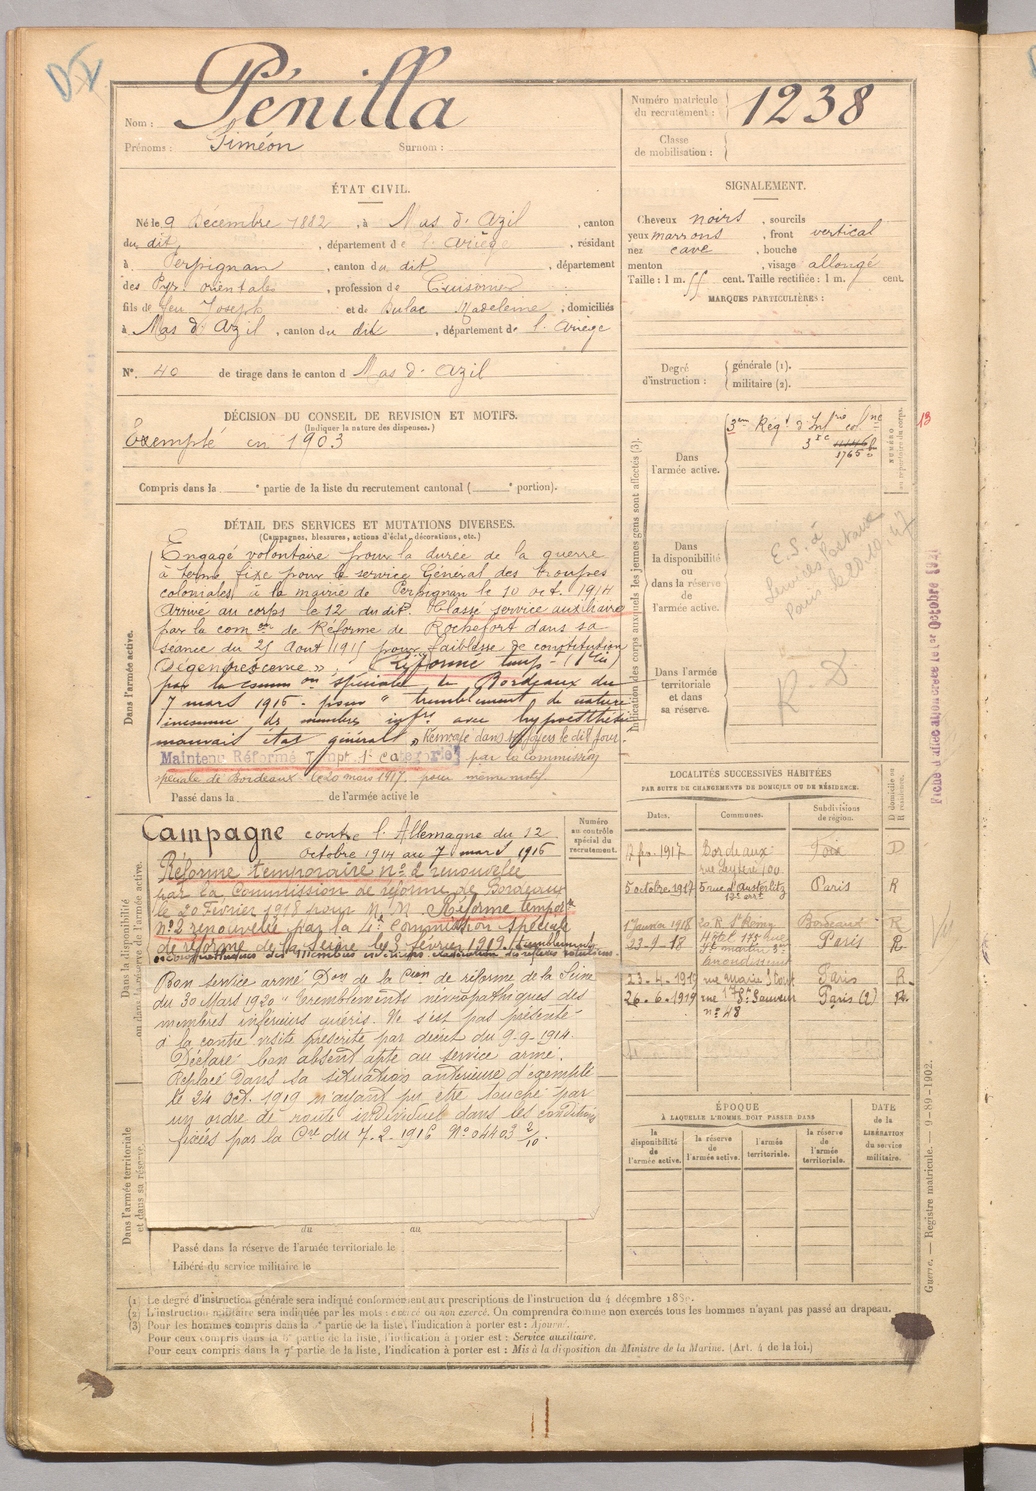 Pénilla
Nom :
Prénoms : Siméon Surnom :
Numéro matricule du recrutement : 1238
Classe de mobilisation :
ÉTAT CIVIL.
Né le 9 Décembre 1882, à Mas d'Azil, canton
du dit, département de l'Ariège, résidant
à Perpignan, canton du dit, département
des Pyr. orientales, profession de Cuisinier
fils de feu Joseph et de Dulac Madeleine, domiciliés
à Mas d'Azil, canton du dit, département de l'Ariège
N°. 40 de tirage dans le canton d Mas d'Azil
DÉCISION DU CONSEIL DE REVISION ET MOTIFS.
(Indiquer la nature des dispenses.)
Exempté en 1903
Compris dans la e partie de la liste du recrutement cantonal ( e portion).
DÉTAIL DES SERVICES ET MUTATIONS DIVERSES.
(Campagnes, blessures, actions d'éclat, décorations, etc.)
Dans l'armée active.
Engagé volontaire pour la durée de la guerre
à terme fixe pour le service Général des troupes
coloniales à la mairie de Perpignan le 10 oct. 1914
Arrivé au corps le 12 du dit. Classé service auxiliaire
par la com on de Réforme de Rochefort dans sa
séance du 25 Aout 1915 pour "faiblesse de constitution
Dégénérescence". Réformé temp.
par la comm on spéciale de Bordeaux du
7 mars 1916 - pour "tremblement de nature
inconnue des membres infrs avec hypoesthésie
mauvais état général" Renvoyé dans ses foyers le dit jour.
Maintenu Réformé Tempt 1e catégorie par la Commission
spéciale de Bordeaux le 20 mars 1917 pour même motif
Passé dans la de l'armée active le
Campagne contre l'Allemagne du 12
octobre 1914 au 7 mars 1916
Numéro au contrôle spécial du recrutement.
Dans la disponibilité ou dans la réserve de l'armée active.
Réforme temporaire n° 2 renouvelée
par la Commission de réforme de Bordeaux
le 20 Février 1918 pour M. M. Réforme tempore
N° 2 renouvelée par la 4e Commission spéciale
de réforme de la Seine le 3 février 1919.
Bon service armé Don de la Cion de réforme de la Seine
du 30 Mars 1920 "Tremblements névropathiques des
membres inférieurs guéris. Ne s'est pas présenté
à la contre visite prescrite par décret du 9-9-1914.
Déclaré bon absent apte au service armé.
Replacé Dans sa situation antérieure d'exempté
le 24 oct. 1919 n'ayant pu etre touché par
un ordre de route individuel dans les conditions
fixées par la Cre du 7.2.1916 N° 04403 2/10.
Dans l'armée territoriale et dans sa réserve.
du au
Passé dans la réserve de l'armée territoriale le
Libéré du service militaire le
SIGNALEMENT.
Cheveux noirs, sourcils
yeux marrons, front vertical
nez cave, bouche
menton, visage allongé
Taille : 1 m. 55 cent. Taille rectifiée : 1 m. cent.
MARQUES PARTICULIÈRES :
Degré d'instruction : générale (1).
militaire (2).
Indication des corps auxquels les jeunes gens sont affectés (3).
Dans l'armée active.
3me Régt d'Infrie colne
3 1765
13
NUMÉRO au répertoire du corps.
Dans la disponibilité ou dans la réserve de l'armée active.
Dans l'armée territoriale et dans sa réserve.
R D
LOCALITÉS SUCCESSIVES HABITÉES
PAR SUITE DE CHANGEMENTS DE DOMICILE OU DE RÉSIDENCE.
Dates. Communes. Subdivisions de région. D domicile ou R résidence.
1917 Bordeaux Foix D
5 octobre 1917 5 rue d'Austerlitz 12e arrt Paris R
1 Janvier 1918 20 R St Rémy Bordeaux R
23-9-18 Hôtel 175 Rue St martin 3e arrondissemt Paris R
23.4.1919 rue Marie Stuart Paris R
26.6.1919 rue St Sauveur n° 48 Paris (2) R
ÉPOQUE
À LAQUELLE L'HOMME DOIT PASSER DANS
la disponibilité de l'armée active.
la réserve de l'armée active.
l'armée territoriale.
la réserve de l'armée territoriale.
DATE de la LIBÉRATION du service militaire.
Guerre. — Registre matricule. — 9-89-1902.
(1) Le degré d'instruction générale sera indiqué conformément aux prescriptions de l'instruction du 4 décembre 1889.
(2) L'instruction militaire sera indiquée par les mots : exercé ou non exercé. On comprendra comme non exercés tous les hommes n'ayant pas passé au drapeau.
(3) Pour les hommes compris dans la partie de la liste, l'indication à porter est : Ajourné.
Pour ceux compris dans la 6e partie de la liste, l'indication à porter est : Service auxiliaire.
Pour ceux compris dans la 7e partie de la liste, l'indication à porter est : Mis à la disposition du Ministre de la Marine. (Art. 4 de la loi.)